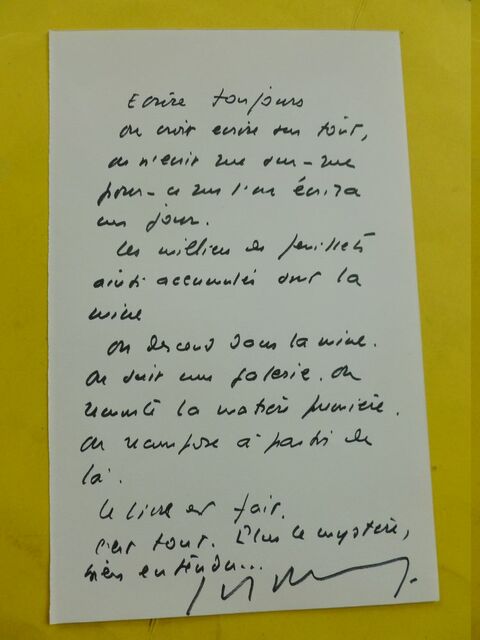 Ecrire toujours
on croit ecrire sur tout,
on n'écrit que sur - que
pour - ce que l'on écrira
un jour.
Les milliers de feuillets
ainsi accumulés sont la
mine
On descend dans la mine.
On suit une galerie. On
remonte la matière première.
On recompose à partir de
là.
Le livre est fait.
C'est tout. Plus le mystère,
bien entendu...